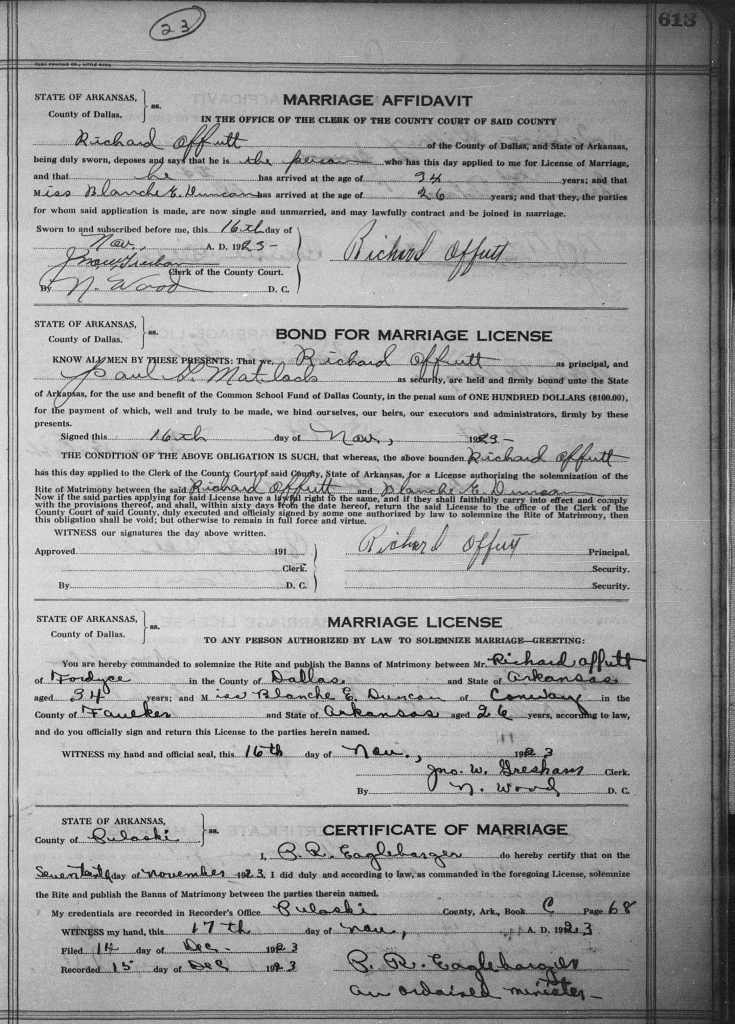 23
613
STATE OF ARKANSAS,
County of Dallas.
ss.
MARRIAGE AFFIDAVIT
IN THE OFFICE OF THE CLERK OF THE COUNTY COURT OF SAID COUNTY
Richard Offutt of the County of Dallas, and State of Arkansas,
being duly sworn, deposes and says that he is the person who has this day applied to me for License of Marriage,
and that he has arrived at the age of 34 years; and that
Miss Blanche E. Duncan has arrived at the age of 26 years; and that they, the parties
for whom said application is made, are now single and unmarried, and may lawfully contract and be joined in marriage.
Sworn to and subscribed before me, this 16th day of
Nov. A. D. 1923
Clerk of the County Court.
By N. Wood D. C.
Richard Offutt
STATE OF ARKANSAS,
County of Dallas.
ss.
BOND FOR MARRIAGE LICENSE
KNOW ALL MEN BY THESE PRESENTS: That we, Richard Offutt as principal, and
Paul S. Matlock as security, are held and firmly bound unto the State
of Arkansas, for the use and benefit of the Common School Fund of Dallas County, in the penal sum of ONE HUNDRED DOLLARS ($100.00),
for the payment of which, well and truly to be made, we bind ourselves, our heirs, our executors and administrators, firmly by these
presents.
Signed this 16th day of Nov, 1923
THE CONDITION OF THE ABOVE OBLIGATION IS SUCH, that whereas, the above bounden Richard Offutt
has this day applied to the Clerk of the County Court of said County, State of Arkansas, for a License authorizing the solemnization of the
Rite of Matrimony between the said Richard Offutt and Blanche E. Duncan
Now if the said parties applying for said License have a lawful right to the same, and if they shall faithfully carry into effect and comply
with the provisions thereof, and shall, within sixty days from the date hereof, return the said License to the office of the Clerk of the
County Court of said County, duly executed and officially signed by some one authorized by law to solemnize the Rite of Matrimony, then
this obligation shall be void; but otherwise to remain in full force and virtue.
WITNESS our signatures the day above written.
Approved 191
Clerk.
By D. C.
Richard Offutt Principal.
Security.
Security.
STATE OF ARKANSAS,
County of Dallas.
ss.
MARRIAGE LICENSE
TO ANY PERSON AUTHORIZED BY LAW TO SOLEMNIZE MARRIAGE—GREETING:
You are hereby commanded to solemnize the Rite and publish the Banns of Matrimony between Mr. Richard Offutt
of Fordyce in the County of Dallas and State of Arkansas
aged 34 years; and Miss Blanche E. Duncan of Conway in the
County of Faulker and State of Arkansas aged 26 years, according to law,
and do you officially sign and return this License to the parties herein named.
WITNESS my hand and official seal, this 16th day of Nov., 1923
Jno. W. Gresham Clerk.
By N. Wood D. C.
STATE OF ARKANSAS,
County of Pulaski
ss.
CERTIFICATE OF MARRIAGE
I, P. R. Eaglebarger do hereby certify that on the
day of November 1923, I did duly and according to law, as commanded in the foregoing License, solemnize
the Rite and publish the Banns of Matrimony between the parties therein named.
My credentials are recorded in Recorder's Office Pulaski County, Ark., Book C Page 68
WITNESS my hand, this 17th day of Nov, A. D. 1923
Filed 14 day of Dec. 1923
Recorded 15 day of Dec 1923
P. R. Eaglebarger
an ordained minister